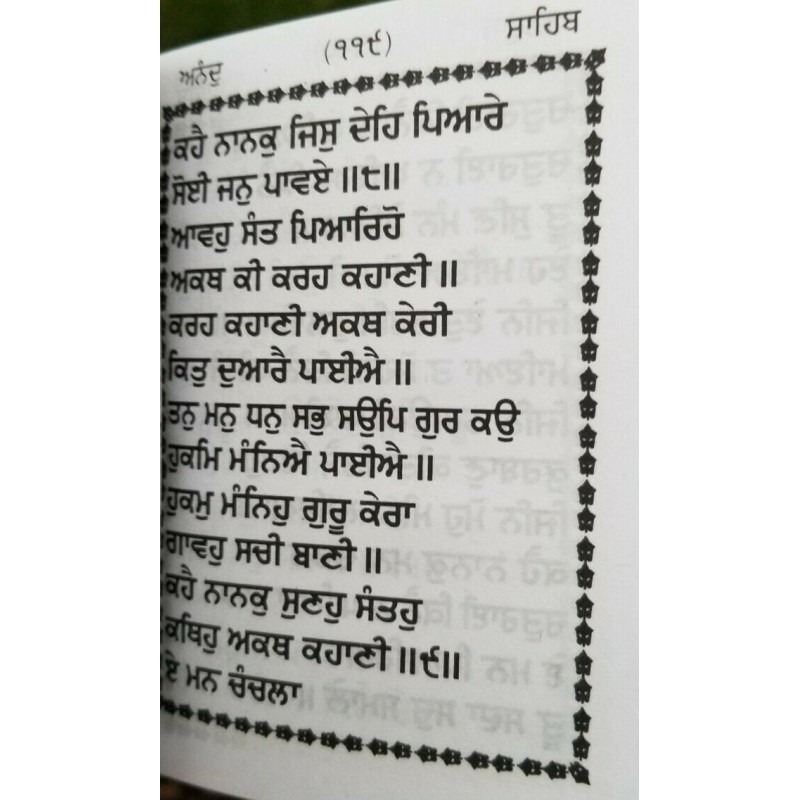 ਅਨੰਦੁ (੧੧੯) ਸਾਹਿਬ
ਕਹੈ ਨਾਨਕੁ ਜਿਸੁ ਦੇਹਿ ਪਿਆਰੇ
ਸੋਈ ਜਨੁ ਪਾਵਏ ॥੮॥
ਆਵਹੁ ਸੰਤ ਪਿਆਰਿਹੋ
ਅਕਥ ਕੀ ਕਰਹ ਕਹਾਣੀ ॥
ਕਰਹ ਕਹਾਣੀ ਅਕਥ ਕੇਰੀ
ਕਿਤੁ ਦੁਆਰੈ ਪਾਈਐ ॥
ਤਨੁ ਮਨੁ ਧਨੁ ਸਭੁ ਸਉਪਿ ਗੁਰ ਕਉ
ਹੁਕਮਿ ਮੰਨਿਐ ਪਾਈਐ ॥
ਹੁਕਮੁ ਮੰਨਿਹੁ ਗੁਰੂ ਕੇਰਾ
ਗਾਵਹੁ ਸਚੀ ਬਾਣੀ ॥
ਕਹੈ ਨਾਨਕੁ ਸੁਣਹੁ ਸੰਤਹੁ
ਕਥਿਹੁ ਅਕਥ ਕਹਾਣੀ ॥੯॥
ਏ ਮਨ ਚੰਚਲਾ